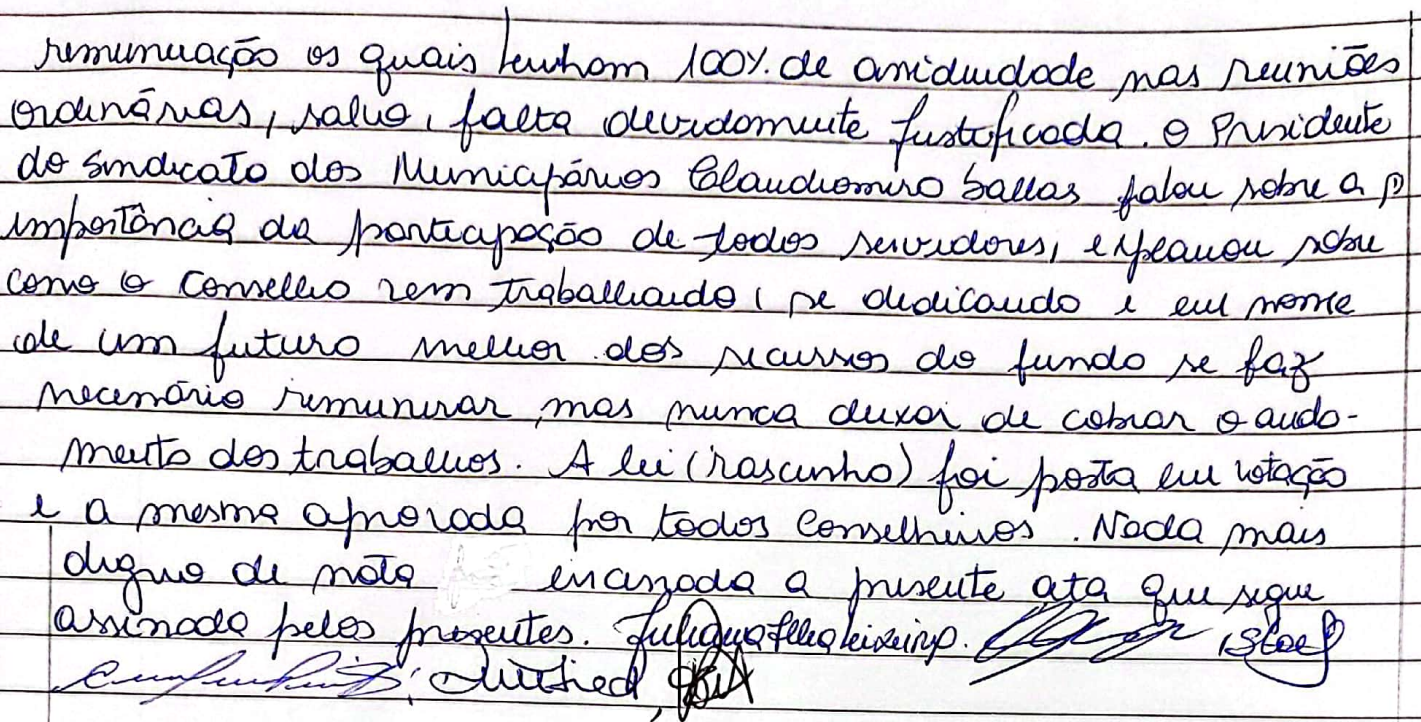 remuneração os quais tenham 100% de assiduidade nas reuniões
ordinárias, salvo, falta devidamente justificada. O Presidente
do Sindicato dos Municipários Claudiomiro Ballas falou sobre a
importância da participação de todos servidores, explanou sobre
como o Conselho vem trabalhando, se dedicando e em nome
de um futuro melhor dos recursos do fundo se faz
necessário remunerar mas nunca deixar de cobrar o anda-
mento dos trabalhos. A lei (rascunho) foi posta em votação
e a mesma aprovada por todos Conselheiros. Nada mais
digno de nota encerrada a presente ata que segue
assinada pelos presentes.